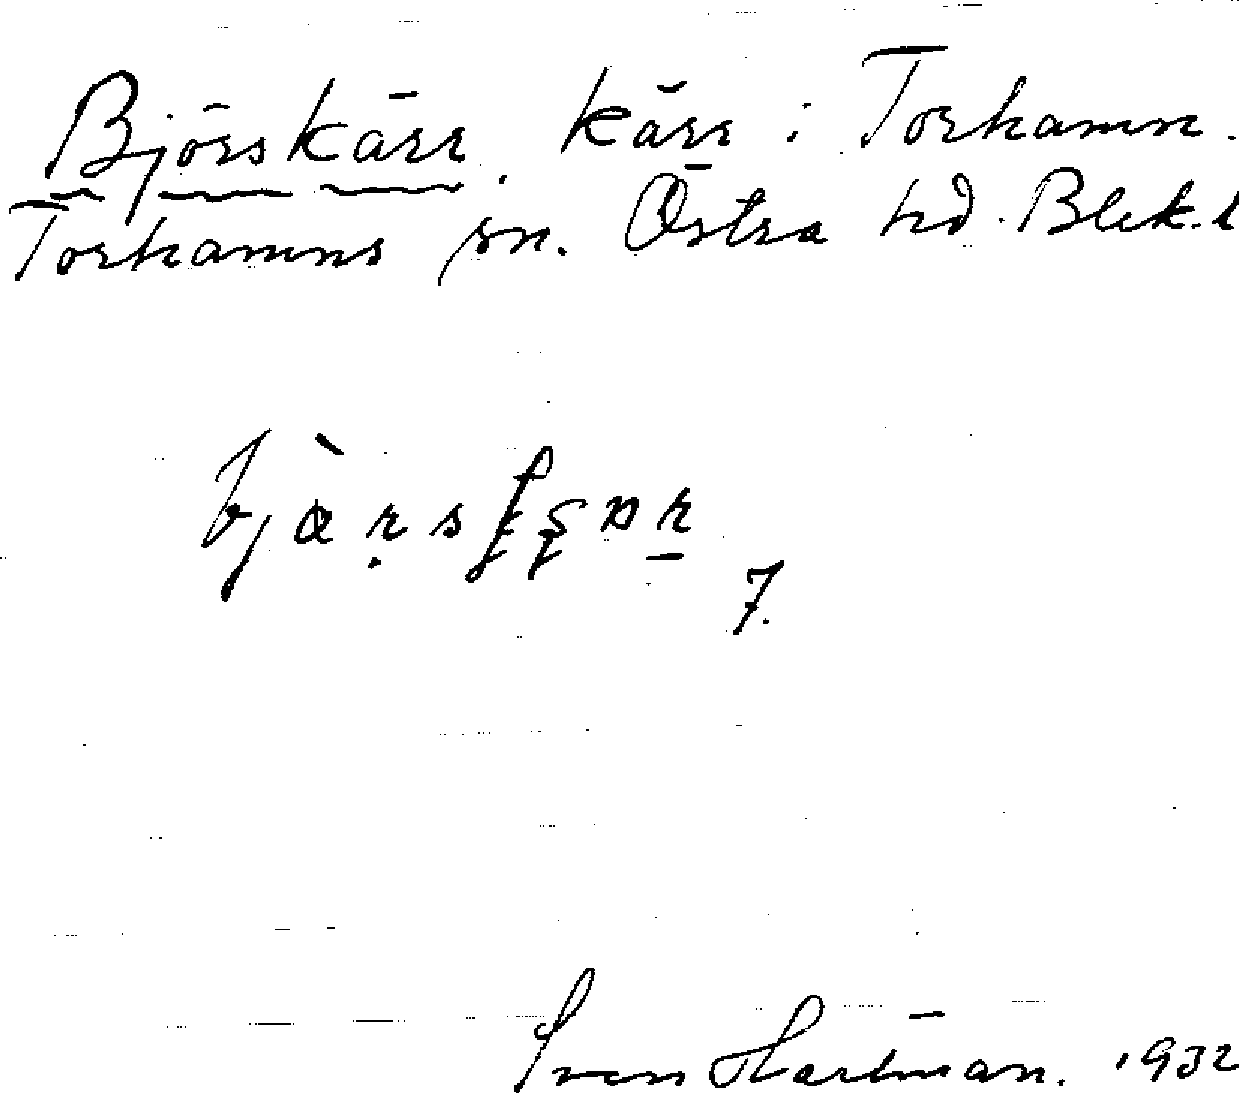 Björskärr. kärr i Torhamn.
Torhamns sn. Östra hd. Blek. l
7.
Sven Hartman. 1932